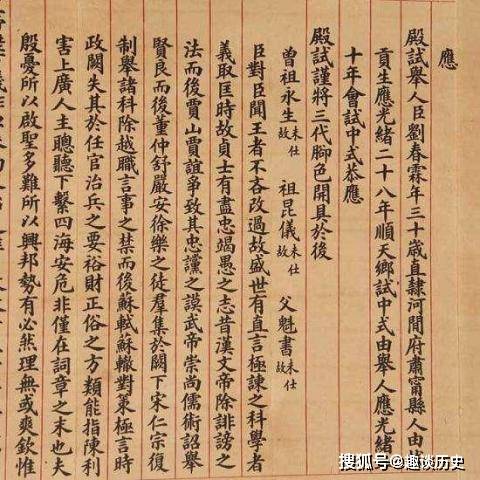 應
殿試舉人臣劉春霖年三十歲直隸河間府肅甯縣人由
貢生應光緒二十八年順天鄉試中式由舉人應光緒
十年會試中式恭應
殿試謹將三代腳色開具於後
曾祖永生未仕故 祖昆儀未仕故 父魁書未仕故
臣對臣聞王者不吝改過故盛世有直言極諫之科學者
義取匡時故貞士有盡忠竭愚之志昔漢文帝除誹謗之
法而後賈山賈誼爭致其忠讜之謨武帝崇尚儒術詔舉
賢良而後董仲舒嚴安徐樂之徒羣集於闕下宋仁宗復
制舉諸科除越職言事之禁而後蘇軾蘇轍對策極言時
政闕失其於任官治兵之要裕財正俗之方類能指陳利
害上廣人主聰聽下繫四海安危非僅在詞章之末也夫
殷憂所以啟聖多難所以興邦勢有必然理無或爽欽惟
搜狐号@趣谈历史